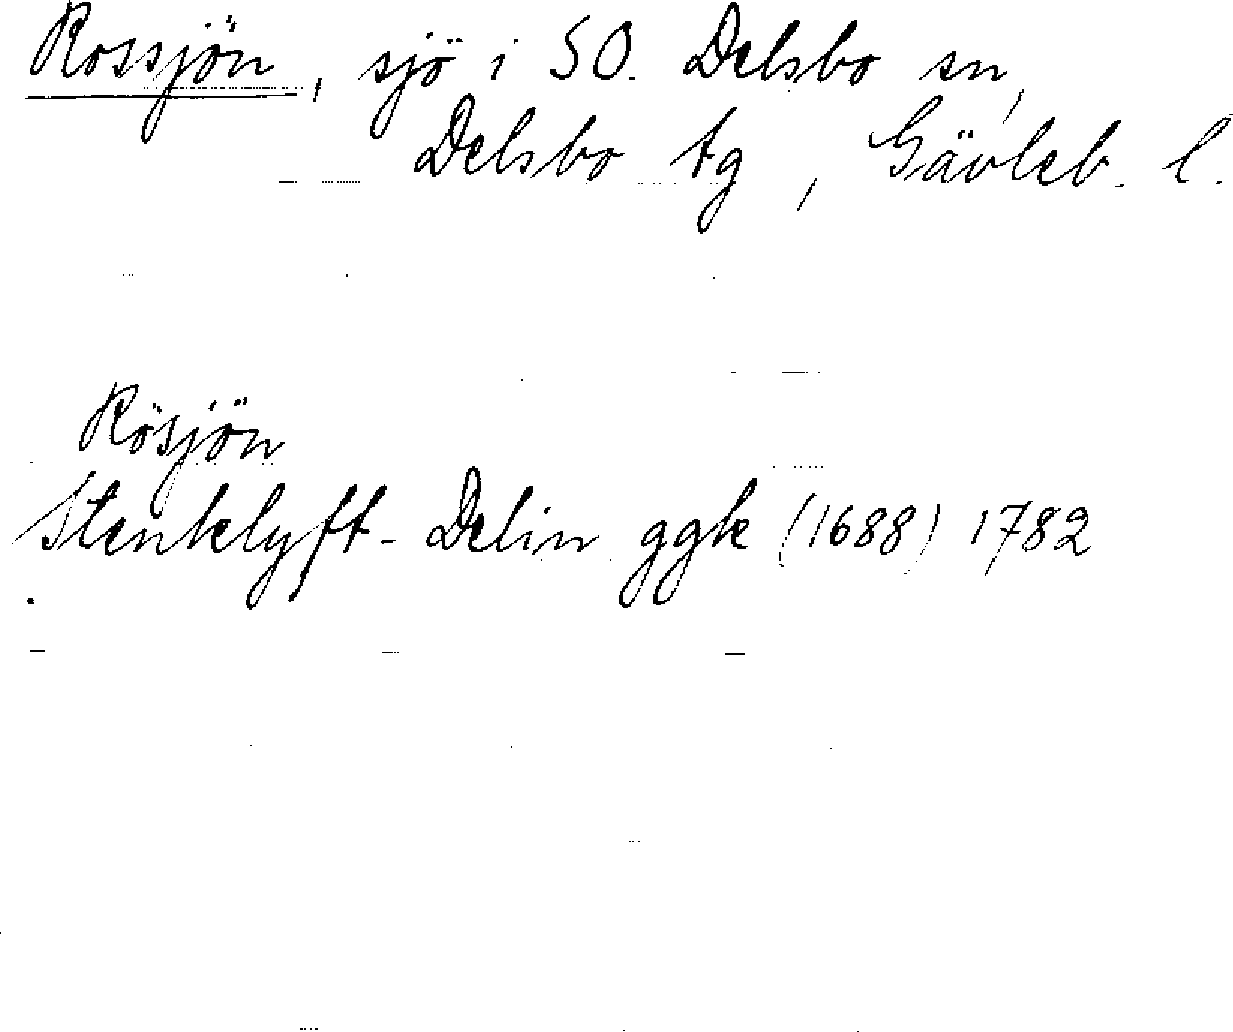 Rossjön, sjö i SO. Delsbo sn,
Delsbo tg, Gävleb. l.
Rösjön
Stenklyft-Delin ggk (1688) 1782